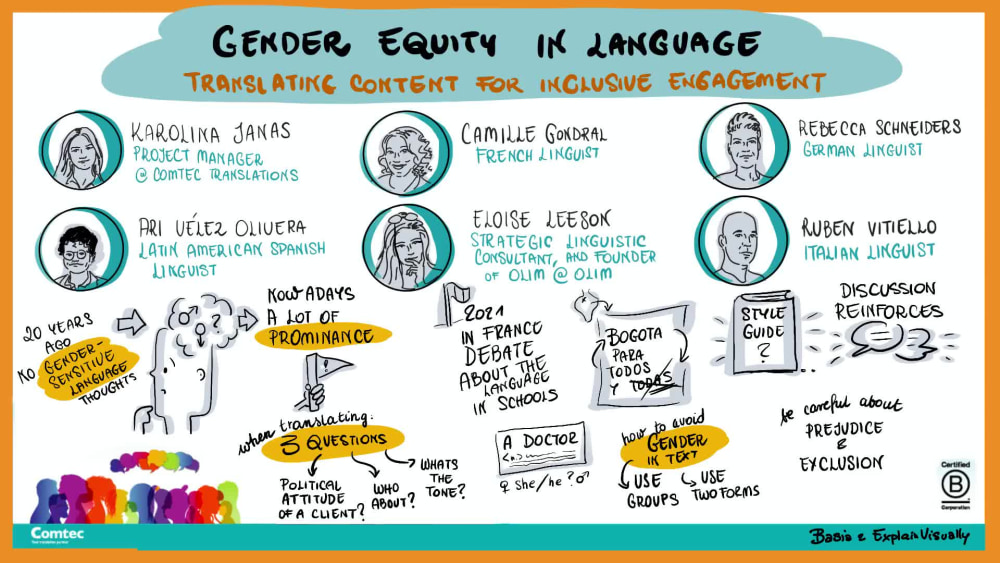 GENDER EQUITY IN LANGUAGE
TRANSLATING CONTENT FOR INCLUSIVE ENGAGEMENT
KAROLINA JANAS
PROJECT MANAGER
@ COMTEC TRANSLATIONS
CAMILLE GONDRAL
FRENCH LINGUIST
REBECCA SCHNEIDERS
GERMAN LINGUIST
ARI VÉLEZ OLIVERA
LATIN AMERICAN SPANISH
LINGUIST
ELOISE LEESON
STRATEGIC LINGUISTIC
CONSULTANT, AND FOUNDER
OF OLIM @ OLIM
RUBEN VITIELLO
ITALIAN LINGUIST
20 YEARS
AGO
NO GENDER-
SENSITIVE
LANGUAGE
THOUGHTS
?
NOWADAYS
A LOT OF
PROMINANCE
!
2021
IN FRANCE
DEBATE
ABOUT THE
LANGUAGE
IN SCHOOLS
BOGOTA
PARA
TODOS
Y TODAS
STYLE
GUIDE
?
DISCUSSION
REINFORCES
when translating:
3 QUESTIONS
POLITICAL
ATTITUDE
OF A CLIENT?
WHO
ABOUT?
WHATS
THE
TONE?
A DOCTOR
♀ she/he ?♂
how to avoid
GENDER
IN TEXT
USE
GROUPS
USE
TWO FORMS
be careful about
PREJUDICE
&
EXCLUSION
Certified
B
Corporation
Comtec
Basia z ExplainVisually